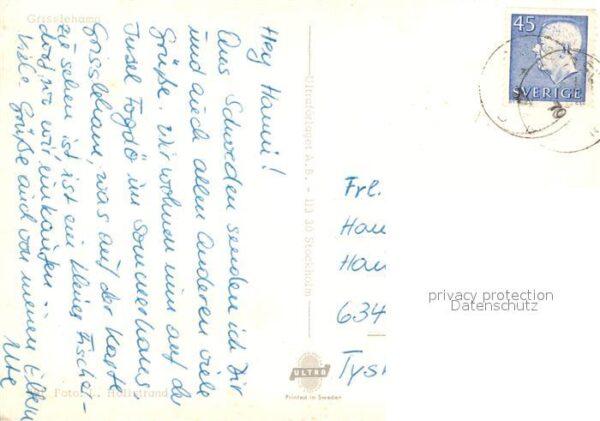 Grisslehamn
Hey Hanni!
Aus Schweden senden ich Dir
und auch allen Anderen viele
Grüße. Wir wohnen nun auf der
Insel Fogdö im Sommerhaus
Grisslehamn, was auf der Karte
zu sehen ist ist ein kleines Fischer-
dorf, wo wir einkaufen.
Viele Grüße auch von meinen Eltern
Ute
Foto: L. Hallstrand
Ultraförlaget A.B. - 113 30 Stockholm
ULTRA
Printed in Sweden
45
SVERIGE
Frl.
Han
Hai
634
Tys
privacy protection
Datenschutz